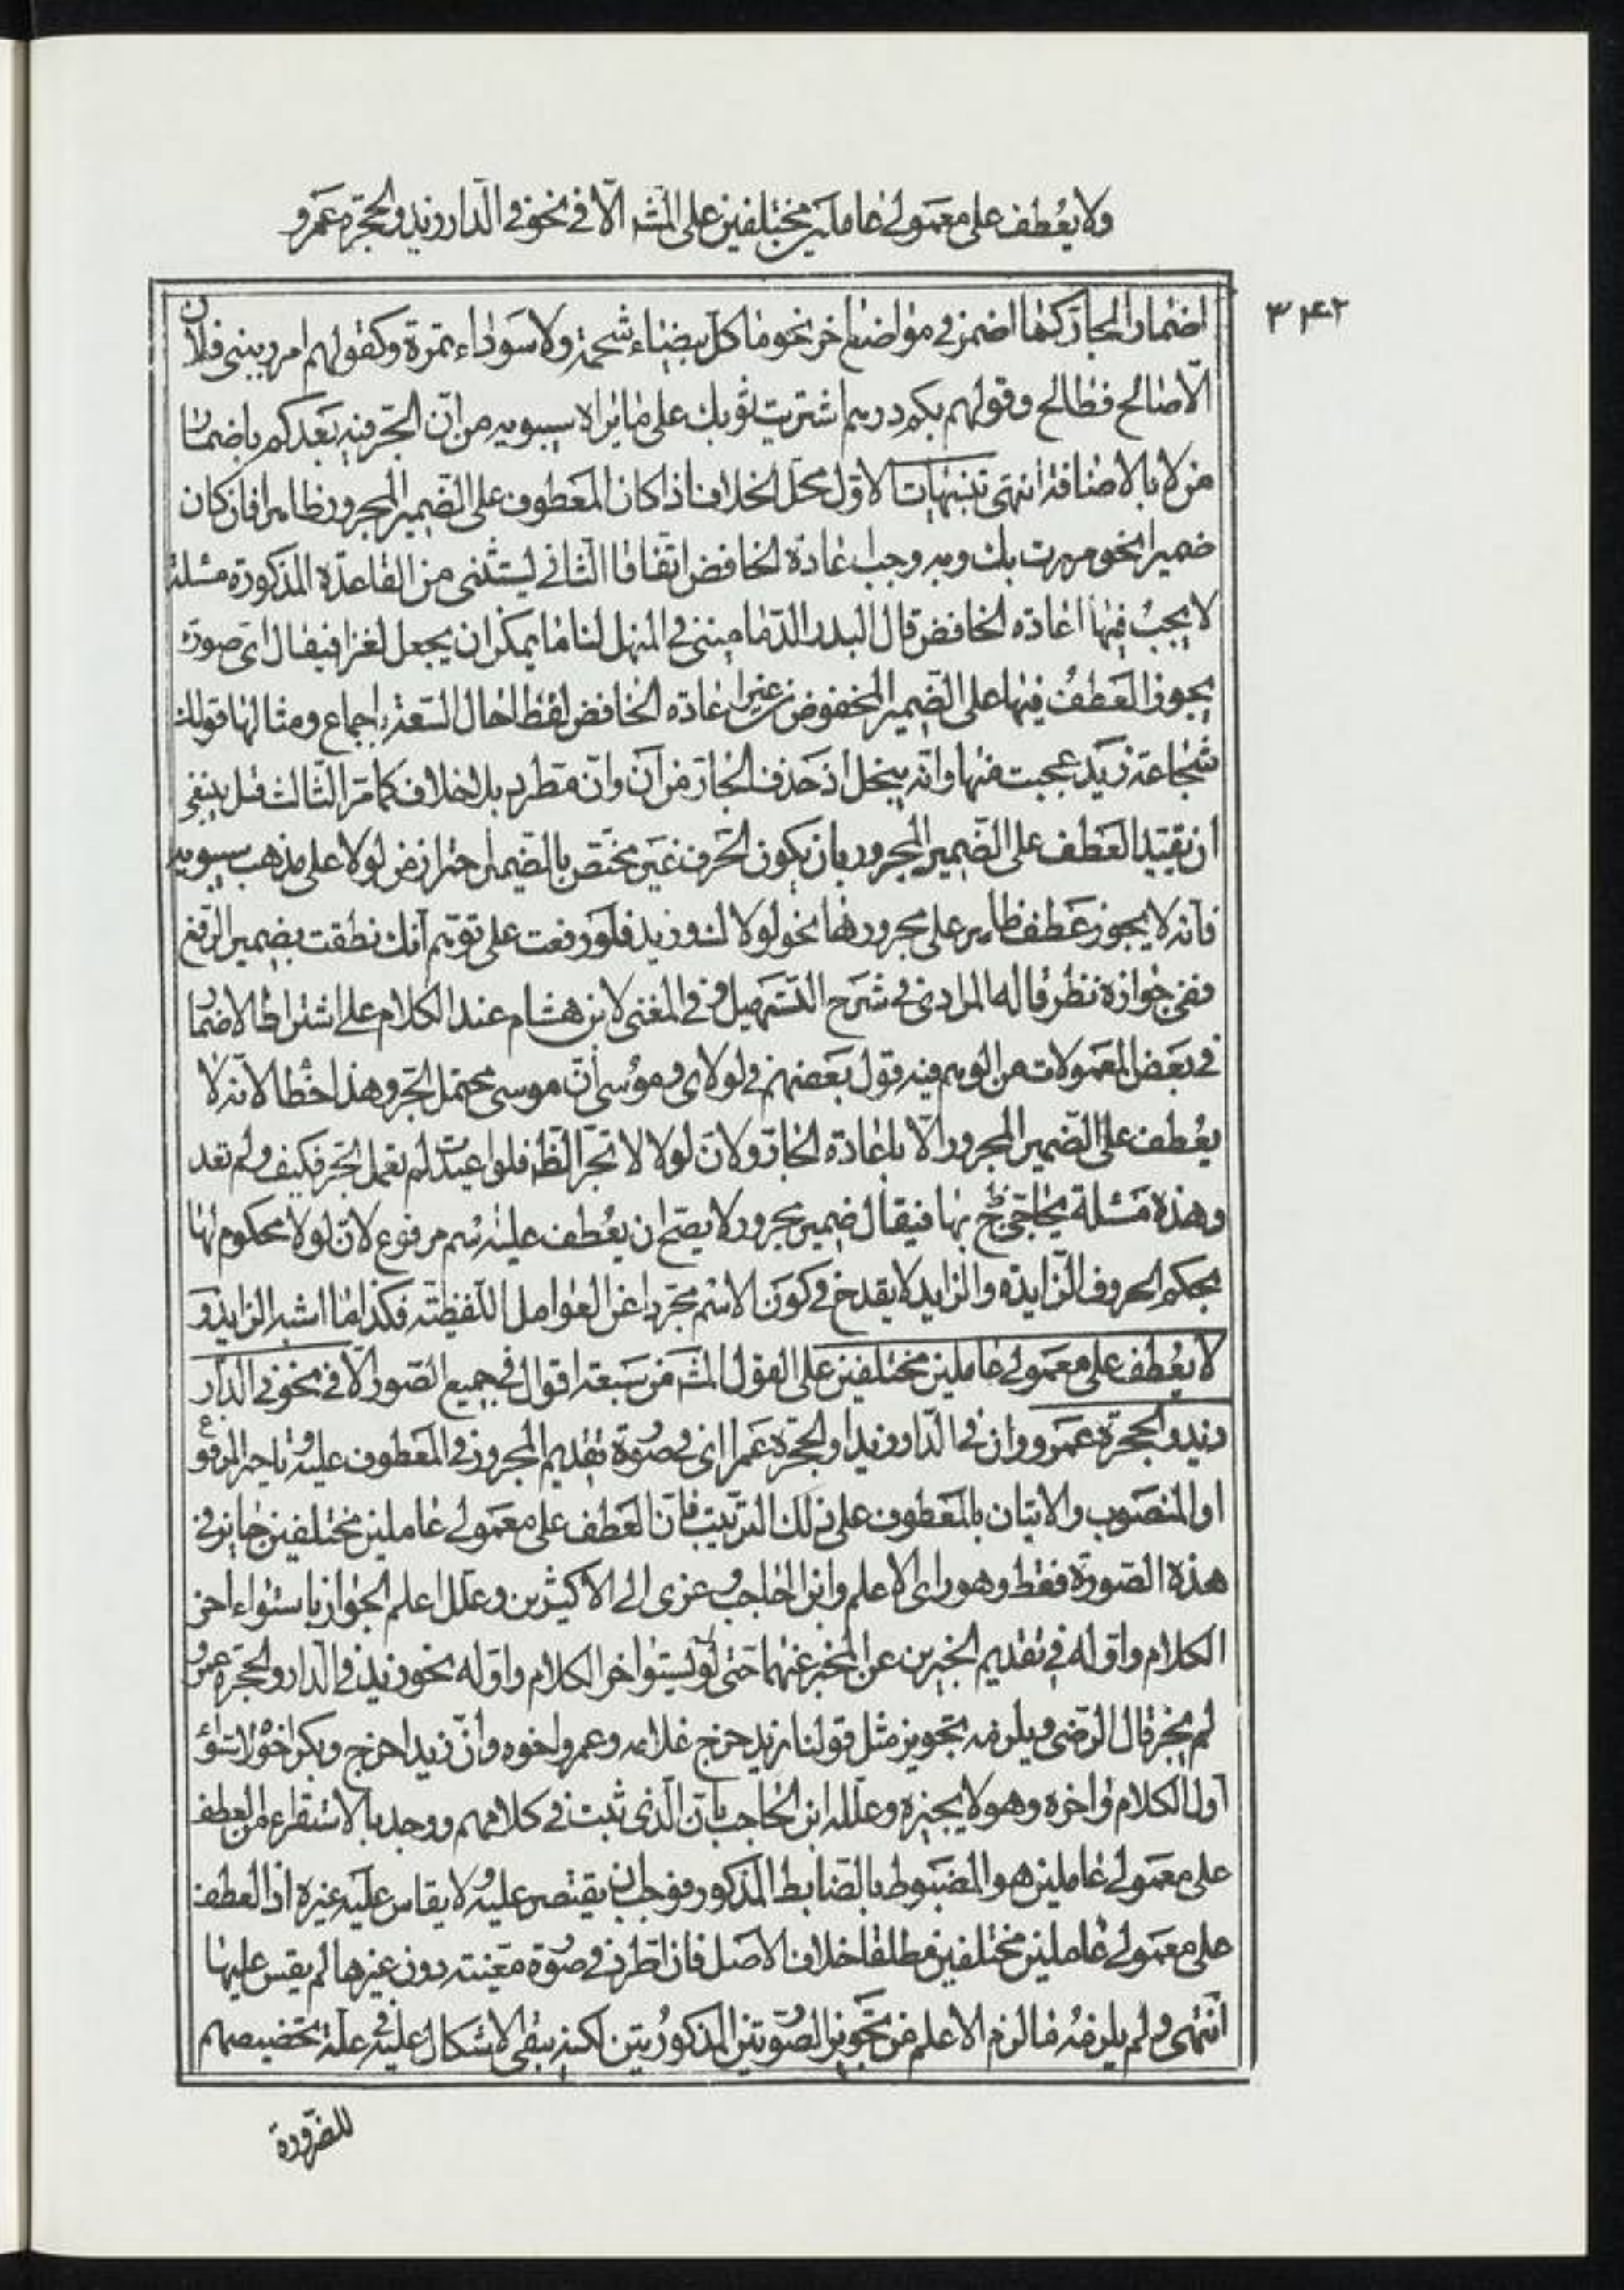 ولا يعطف على معمولي عاملين مختلفين على المش الّا في نحو في الدار زيد والحجرة عمرو
٣۴٢
اضمار الجار كما اضمر في مواضع اخر نحو ما كل بيضاء شحمة ولا سوداء تمرة وكقولهم امرر ببني فلان
الّا صالح فطالح وقولهم بكم درهم اشتريت ثوبك على ما يراه سيبويه من انّ الجرّ فيه بعد كم باضمار
من لا بالاضافة انتهى تنبيهات الاول محل الخلاف اذا كان المعطوف على الضمير المجرور ظاهرا فان كان
ضميرا نحو مررت بك وبه وجب اعادة الخافض اتفاقا الثاني يستثنى من القاعدة المذكورة مسئلة
لا يجب فيها اعادة الخافض قال البدر الدماميني في المنهل لنا ما يمكن ان يجعل لغزا فيقال اى صورة
يجوز العطف فيها على الضمير المخفوض من غير اعادة الخافض لفظا حال السعة باجماع ومثالها قولك
شجاعة زيد عجبت منها وانه يبخل اذ حذف الجار من ان وانّ مطرد بلا خلاف كما مر الثالث قيل ينبغي
ان تقيد العطف على الضمير المجرور بان يكون الحرف غير مختص بالضمير احتراز من لولا على مذهب سيبويه
فانه لا يجوز عطف ظاهر على مجرورها نحو لولاك وزيد فلو رفعت على توهم انك نطقت بضمير الرفع
ففي جوازه نظر قاله المرادي في شرح التسهيل وفي المغني لابن هشام عند الكلام على اشتراط الاضمار
في بعض المعمولات من الوهم فيه قول بعضهم في لولاى وموسى انّ موسى محتمل الجر وهذا خطا لانه لا
يعطف على الضمير المجرور الّا باعادة الجارّ ولانّ لولا لا تجرّ الظ فلو اعيدت لم تعمل الجر فكيف ولم تعد
وهذه مسئلة يحاجى بها فيقال ضمير مجرور لا يصح ان يعطف عليه اسم مرفوع لانّ لولا محكوم لها
بحكم الحروف الزايدة والزايد لا يقدح في كون الاسم مجردا عن العوامل اللفظية فكذا ما اشبه الزايد و
لا يعطف على معمولي عاملين مختلفين على القول المش من سبعة اقوال في جميع الصور الّا في نحو في الدار
زيد والحجرة عمرو وانّ في الدار زيدا والحجرة عمرا اى في صورة تقديم المجرور في المعطوف عليه وتاخير المرفوع
او المنصوب والاتيان بالمعطوف على ذلك الترتيب فانّ العطف على معمولي عاملين مختلفين جايز في
هذه الصورة فقط وهو راى الاعلم وابن الحاجب وعزى الى الاكثرين وعلل اعلم الجواز باستواء اخر
الكلام واوله في تقديم الخبرين عن المخبر عنهما حتى لو لم يستو اخر الكلام واوله نحو زيد في الدار والحجرة عمرو
لم يجز قال الرضي ويلزمه تجويز مثل قولنا زيد خرج غلامه وعمرو اخوه وانّ زيدا خرج وبكرا اخوه لاستواء
اول الكلام واخره وهو لا يجيزه وعلله ابن الحاجب بانّ الذي ثبت في كلامهم ووجد بالاستقراء من العطف
على معمولي عاملين هو المضبوط بالضابط المذكور فوجب ان يقتصر عليه ولا يقاس عليه غيره اذ العطف
على معمولي عاملين مختلفين مطلقا خلاف الاصل فان اطرد في صورة معينة دون غيرها لم يقس عليها
انتهى ولم يلزمه ما لزم الاعلم من تجويز الصورتين المذكورتين لكنه يبقى الاشكال عليه في علة تخصيصهم
للضرورة